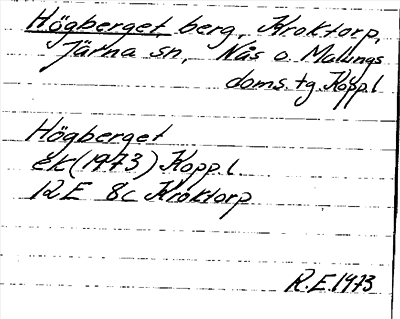 Högberget berg, Kroktorp,
Järna sn, Nås o. Malungs
doms.tg. Kopp.l
Högberget
ek (1973) Kopp.l.
12E 8c Kroktorp
R.E. 1973